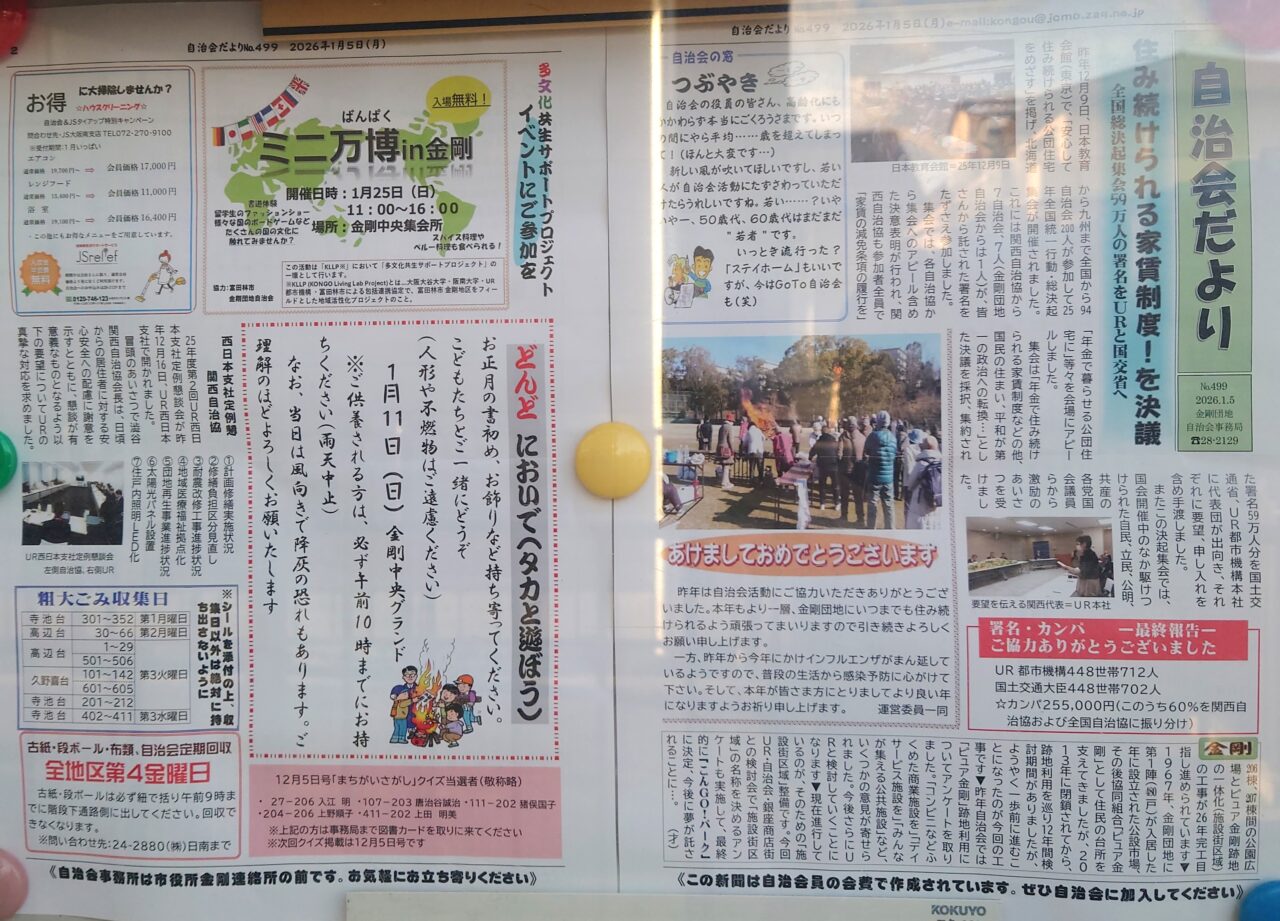 自治会だよりNo.499 2026年1月5日(月)e-mail:kongou@jomo.zaq.ne.jp
自治会だより
No.499
2026.1.5
金剛団地
自治会事務局
☎28-2129
住み続けられる家賃制度!を決議
全国総決起集会59万人の署名をURと国交省へ
昨年12月9日、日本教育
会館(東京)で、「安心して
住み続けられる公団住宅
をめざす」を掲げ、北海道
から九州まで全国から94
自治会200人が参加して25
年全国統一行動・総決起
集会が開催されました。
これには関西自治協から
7自治会、7人(金剛団地
自治会からは1人)が、皆
さんから託された署名を
たずさえ参加しました。
集会では、各自治協か
ら集会へのアピール含め
た決意表明が行われ、関
西自治協も参加者全員で
「家賃の減免条項の履行を」
「年金で暮らせる公団住
宅に」等々を会場にアピー
ルしました。
集会は「年金で住み続け
られる家賃制度などの他、
国民の住まい、平和が第
一の政治への転換…」とし
た決議を採択、集約され
た署名59万人分を国土交
通省、UR都市機構本社
に代表団が出向き、それ
ぞれに要望、申し入れを
含め手渡しました。
またこの決起集会では、
国会開催中のなか駆けつ
けられた自民、立民、公明、
共産の
各党国
会議員
らから
激励の
あいさ
つを受
けまし
た。
日本教育会館=25年12月9日
要望を伝える関西代表=UR本社
自治会の窓
つぶやき
自治会の役員の皆さん、高齢化にも
かかわらず本当にごくろうさまです。いつ
の間にやら平均……歳を超えてしまっ
て!(ほんと大変です…)
新しい風が吹いてほしいですし、若い
人が自治会活動にたずさわっていただ
けたらうれしいですね。若い……?いや
いや一、50歳代、60歳はまだまだ
"若者"です。
いっとき流行った?
「ステイホーム」もいいで
すが、今はGoTo自治会
も(笑)
あけましておめでとうございます
昨年は自治会活動にご協力いただきありがとうござ
いました。本年もより一層、金剛団地にいつまでも住み続
けられるよう頑張ってまいりますので引き続きよろしく
お願い申し上げます。
一方、昨年から今年にかけインフルエンザがまん延して
いるようですので、普段の生活から感染予防に心がけて
下さい。そして、本年が皆さま方にとりましてより良い年
になりますようお祈り申し上げます。 運営委員一同
署名・カンパ ー最終報告ー
ご協力ありがとうございました
UR 都市機構448世帯712人
国土交通大臣448世帯702人
☆カンパ255,000円(このうち60%を関西自
治協および全国自治協に振り分け)
金剛
206棟、207棟間の公園広
場とピュア金剛跡地
の一体化(施設街区域)
の工事が26年完工目
指し進められています▼
1967年、金剛団地に
第1陣(90戸)が入居した
年に設立された公設市場、
その後協同組合「ピュア金
剛」として住民の台所を
支えてきましたが、20
13年に閉鎖されてから、
跡地利用を巡り12年間検
討期間がありましたが、
ようやく一歩前に進むこ
とになったのが今回の工
事です▼昨年自治会では
「ピュア金剛」跡地利用に
ついてアンケートを取り
ました。「コンビニなどふ
くめた商業施設を」「デイ
サービス施設を」「みんな
が集える公共施設」など、
いくつかの意見が寄せら
れました。今後さらにU
Rと検討していくことに
なります▼現在進行して
いるのが、そのための施
設街区域の整備です。今回
UR・自治会・銀座商店街
との検討会で「施設街区
域」の名称を決めるアン
ケートも実施して、最終
的に「こんGO!パーク」
に決定。今後に夢が託さ
れることに…。 (オ)
《この新聞は自治会員の会費で作成されています。ぜひ自治会に加入してください》
2
自治会だよりNo.499 2026年1月5日(月)
多文化共生サポートプロジェクト
イベントにご参加を
入場無料!
ばんぱく
ミニ万博in金剛
開催日時:1月25日(日)
11:00~16:00
場所:金剛中央集会所
書道体験
留学生のファッションショー
様々な国のボードゲームなど
たくさんの国の文化に
触れてみませんか?
スパイス料理や
ペルー料理も食べられる!
協力:富田林市
金剛団地自治会
この活動は「KLLP※」において「多文化共生サポートプロジェクト」の
一環として行います。
※KLLP(KONGO Living Lab Project)とは…大阪大谷大学・阪南大学・UR
都市機構・富田林市による包括連携協定で、富田林市 金剛地区をフィー
ルドとした地域活性化プロジェクトのこと。
お得に大掃除しませんか?
☆ハウスクリーニング☆
自治会&JSタイアップ特別キャンペーン
問合わせ先・JS大阪南支店 TEL072-270-9100
※受付期間:1月いっぱい
エアコン
通常価格 19,700円~ ⇒ 会員価格17,000円
レンジフード
⇒ 会員価格 11,000円
浴室
通常価格 19,100円~ ⇒ 会員価格 16,400円
・この他にもお得なメニューをご用意しています。
JSrelief
入会金
年会費
無料
0120-746-123
どんど においで(タカと遊ぼう)
お正月の書初め、お飾りなど持ち寄ってください。
こどもたちとご一緒にどうぞ
(人形や不燃物はご遠慮ください)
1月11日(日)金剛中央グランド
※ご供養される方は、必ず午前10時までにお持
ちください(雨天中止)
なお、当日は風向きで降灰の恐れもあります。ご
理解のほどよろしくお願いいたします
西日本支社定例懇
関西自治協
25年度第2回UR西日
本支社定例懇談会が昨
年12月16日、UR西日本
支社で開かれました。
冒頭のあいさつで澁谷
関西自治協会長は、「日頃
からの居住者に対する安
心安全への配慮に謝意を
示すとともに、懇談が有
意義なものとなるよう以
下の要望についてURの
真摯な対応を求めました。
①計画修繕実施状況
②修繕負担区分見直し
③耐震改修工事進捗状況
④地域医療福祉拠点化
⑤団地再生事業進捗状況
⑥太陽光パネル設置
⑦住戸内照明LED化
UR西日本支社定例懇談会
左側自治協、右側UR
粗大ごみ収集日
寺池台 301~352 第1月曜日
高辺台 30~66 第2月曜日
高辺台 1~29
501~506
久野喜台 101~142
601~605
第3火曜日
寺池台 201~212
寺池台 402~411 第3水曜日
※シールを添付の上、収
集日以外は絶対に持
ち出さないように
古紙・段ボール・布類、自治会定期回収
全地区第4金曜日
古紙・段ボールは必ず紐で括り午前9時ま
でに階段下通路側に出してください。回収で
きなくなります。
※問い合わせ先:24-2880(株)日南まで
12月5日号「まちがいさがし」クイズ当選者(敬称略)
・27-206 入江 明 ・107-203 唐治谷誠治 ・111-202 猪俣国子
・204-206 上野順子 ・411-202 上田 明美
※上記の方は事務局まで図書カードを取りに来てください
※次回クイズ掲載は12月5日号です
《自治会事務所は市役所金剛連絡所の前です。お気軽にお立ち寄りください》
KOKUYO